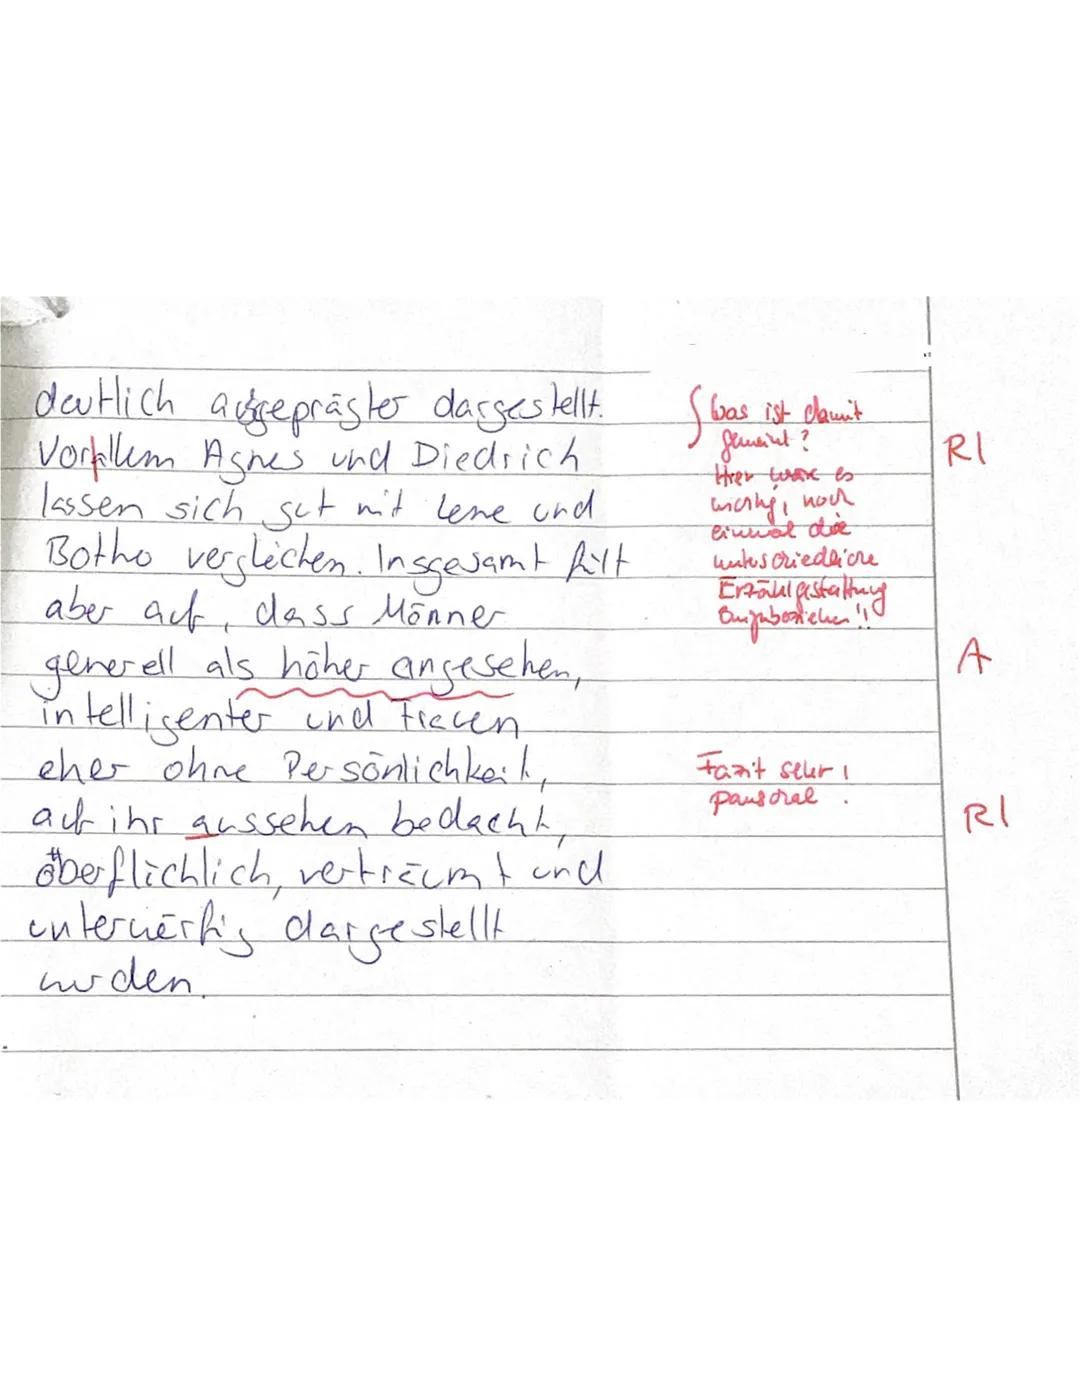 deutlich ausgeprägter dargestellt.
Vorallem Agnes und Diedrich
lassen sich gut mit Lene und
Botho vergleichen. Insgesamt fällt
aber auf, dass Männer
generell als höher angesehen,
intelligenter und Frauen
eher ohne Persönlichkeit,
auf ihr aussehen bedacht,
oberflächlich, verträumt und
unterwürfig dargestellt
wurden.
Was ist damit
gemeint?
Hier wäre es
wichtig, noch
einmal die
unterschiedliche
Erzählgestaltung
einzubeziehen!!
Fazit sehr
pauschal.
R1
A
R1